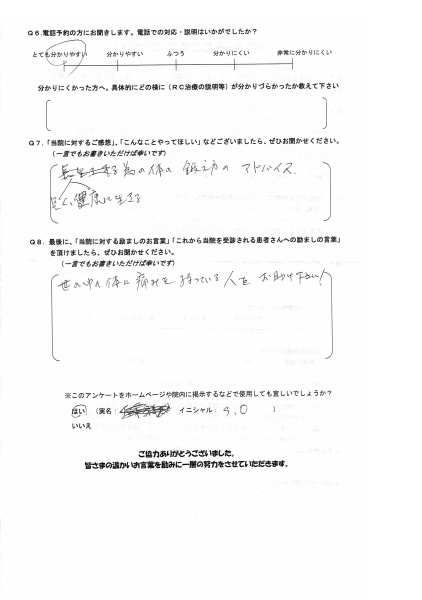 Q6.電話予約の方にお聞きします。電話での対応・説明はいかがでしたか？
とても分かりやすい 分かりやすい ふつう 分かりにくい 非常に分かりにくい
分かりにくかった方へ。具体的にどの様に（RC治療の説明等）が分かりづらかったか教えて下さい
Q7.「当院に対するご感想」、「こんなことやってほしい」などございましたら、ぜひお聞かせください。
（一言でもお書きいただけば幸いです）
為の体の鍛え方のアドバイス、
健康に生きる
Q8．最後に、「当院に対する励ましのお言葉」「これから当院を受診される患者さんへの励ましの言葉」
を頂けましたら、ぜひお聞かせください。
（一言でもお書きいただけば幸いです）
世の中の体に痛みを持っている人をお助け下さい！
※このアンケートをホームページや院内に掲示するなどで使用しても宜しいでしょうか？
はい （実名： イニシャル： S.O ）
いいえ
ご協力ありがとうございました。
皆さまの温かいお言葉を励みに一層の努力をさせていただきます。